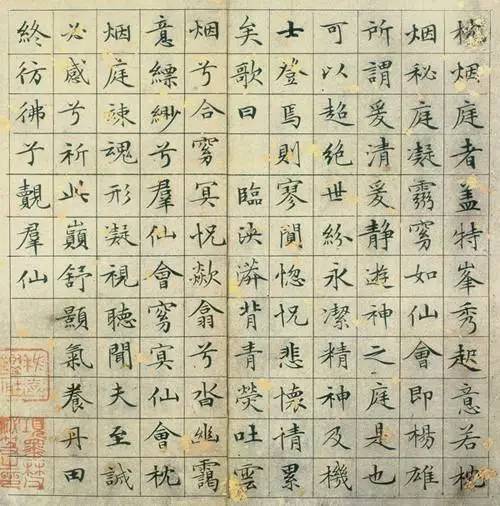 枕烟庭者盖特峯秀起意若枕
烟秘庭凝窅如仙會即楊雄
所謂爰清爰靜遊神之庭是也
可以超絕世紛永潔精神及機
士登焉則寥閴惚怳悲懷情累
矣歌曰 臨泱漭背青熒吐雲
烟兮合窅冥怳歘翕兮沓幽靄
意縹緲兮羣仙會窅冥仙會枕
烟庭竦魂形凝視聽聞夫至誠
必感兮祈此巔舒顥氣養丹田
終彷彿乎覿羣仙